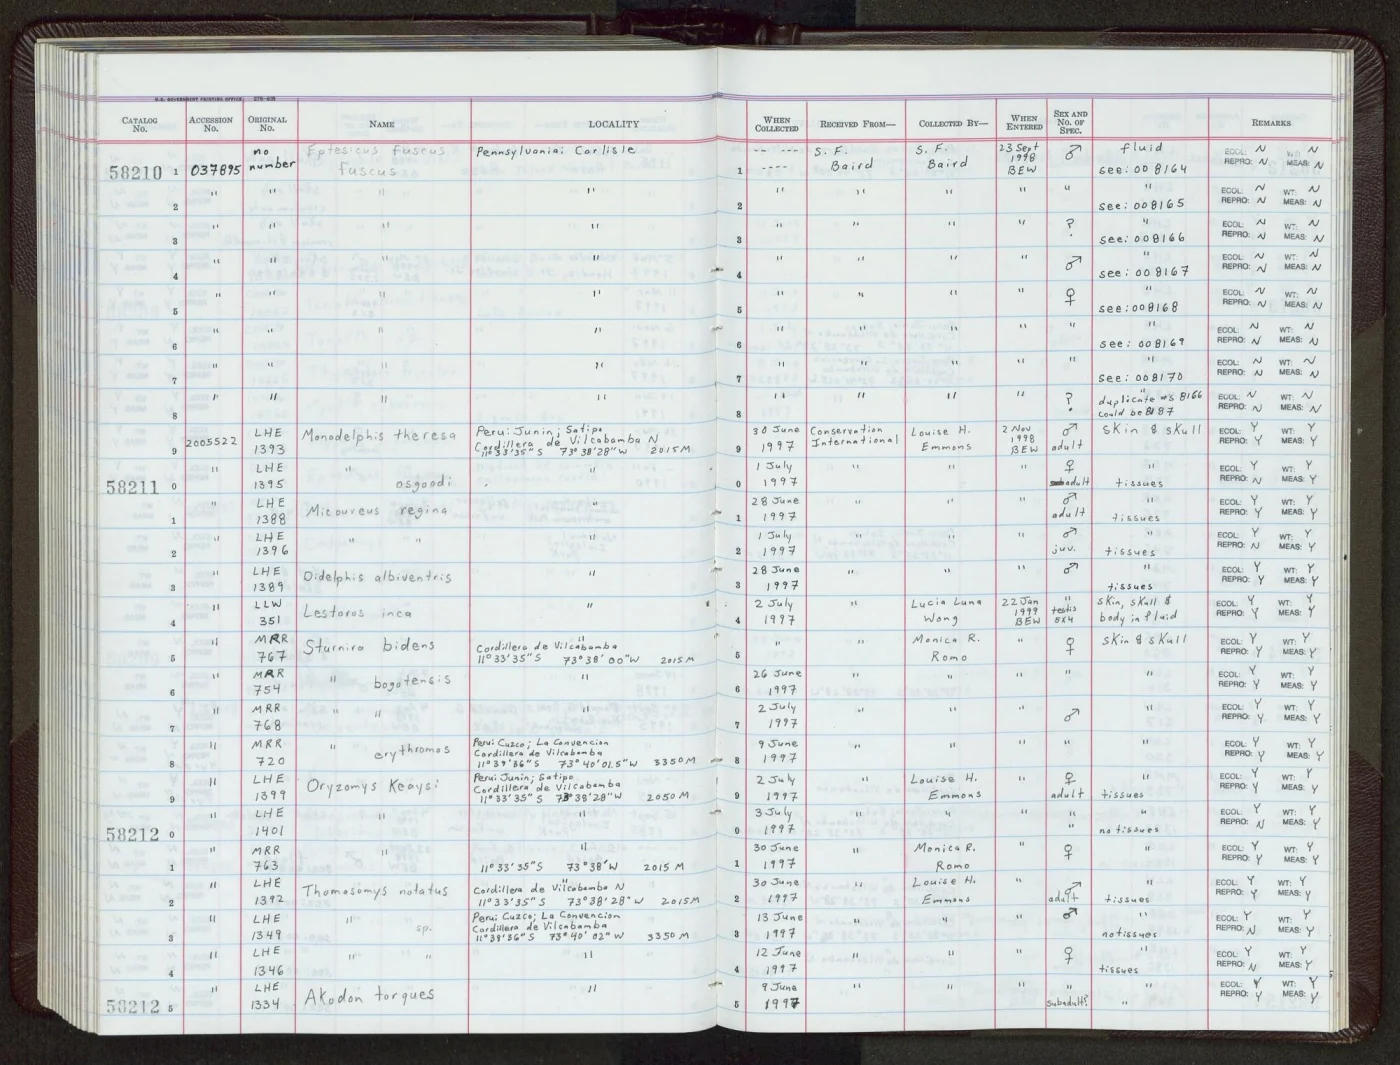 U.S. GOVERNMENT PRINTING OFFICE
CATALOG No. ACCESSION No. ORIGINAL No. NAME LOCALITY WHEN COLLECTED RECEIVED FROM— COLLECTED BY— WHEN ENTERED SEX AND NO. OF SPEC. REMARKS
58210 1 037895 no number Eptesicus fuscus fuscus Pennsylvania: Carlisle 1 -- --- ---- S. F. Baird S. F. Baird 23 Sept 1998 BEW ♂ fluid see: 008164 ECOL: N WT: N REPRO: N MEAS: N
2 " " " " " 2 " " " " " " see: 008165 ECOL: N WT: N REPRO: N MEAS: N
3 " " " " " 3 " " " " ? " see: 008166 ECOL: N WT: N REPRO: N MEAS: N
4 " " " " " 4 " " " " ♂ " see: 008167 ECOL: N WT: N REPRO: N MEAS: N
5 " " " " 5 " " " " ♀ " see: 008168 ECOL: N WT: N REPRO: N MEAS: N
6 " " " " 6 " " " " " " see: 008169 ECOL: N WT: N REPRO: N MEAS: N
7 " " " " 7 " " " " " " see: 008170 ECOL: N WT: N REPRO: N MEAS: N
8 " " " " 8 " " " " ? " duplicate #s 8166 could be 8187 ECOL: N WT: N REPRO: N MEAS: N
9 2005522 LHE 1393 Monodelphis theresa Peru: Junin; Satipo Cordillera de Vilcabamba N 11°33'35"S 73°38'28"W 2015M 9 30 June 1997 Conservation International Louise H. Emmons 2 Nov 1998 BEW ♂ adult skin & skull ECOL: Y WT: Y REPRO: Y MEAS: Y
58211 0 " LHE 1395 " osgoodi " 0 1 July 1997 " " " ♀ subadult " tissues ECOL: Y WT: Y REPRO: N MEAS: Y
1 " LHE 1388 Micoureus regina " 1 28 June 1997 " " " ♂ adult " tissues ECOL: Y WT: Y REPRO: Y MEAS: Y
2 " LHE 1396 " " " 2 1 July 1997 " " " ♂ juv. " tissues ECOL: Y WT: Y REPRO: N MEAS: Y
3 " LHE 1389 Didelphis albiventris " 3 28 June 1997 " " " ♂ " tissues ECOL: Y WT: Y REPRO: Y MEAS: Y
4 " LLW 351 Lestoros inca " 4 2 July 1997 " Lucia Luna Wong 22 Jan 1999 BEW " testis 5x4 skin, skull & body in fluid ECOL: Y WT: Y REPRO: Y MEAS: Y
5 " MRR 767 Sturnira bidens " Cordillera de Vilcabamba 11°33'35"S 73°38'00"W 2015M 5 " " Monica R. Romo " ♀ skin & skull ECOL: Y WT: Y REPRO: Y MEAS: Y
6 " MRR 754 " bogotensis " 6 26 June 1997 " " " " " ECOL: Y WT: Y REPRO: Y MEAS: Y
7 " MRR 768 " " " 7 2 July 1997 " " " ♂ " ECOL: Y WT: Y REPRO: Y MEAS: Y
8 " MRR 720 " erythromos Peru: Cuzco; La Convencion Cordillera de Vilcabamba 11°39'36"S 73°40'01.5"W 3350M 8 9 June 1997 " " " " " ECOL: Y WT: Y REPRO: Y MEAS: Y
9 " LHE 1399 Oryzomys Keaysi Peru: Junin; Satipo Cordillera de Vilcabamba 11°33'35"S 73°38'28"W 2050M 9 2 July 1997 " Louise H. Emmons " ♀ adult " tissues ECOL: Y WT: Y REPRO: Y MEAS: Y
58212 0 " LHE 1401 " " " 0 3 July 1997 " " " " " " no tissues ECOL: Y WT: Y REPRO: N MEAS: Y
1 " MRR 763 " " " 11°33'35"S 73°38'W 2015M 1 30 June 1997 " Monica R. Romo " ♀ " ECOL: Y WT: Y REPRO: Y MEAS: Y
2 " LHE 1392 Thomasomys notatus " Cordillera de Vilcabamba N 11°33'35"S 73°38'28"W 2015M 2 30 June 1997 " Louise H. Emmons " ♂ adult " tissues ECOL: Y WT: Y REPRO: Y MEAS: Y
3 " LHE 1349 " sp. Peru: Cuzco; La Convencion Cordillera de Vilcabamba 11°39'36"S 73°40'02"W 3350M 3 13 June 1997 " " " ♂ " no tissues ECOL: Y WT: Y REPRO: Y MEAS: Y
4 " LHE 1346 " " " 4 12 June 1997 " " " ♀ " tissues ECOL: Y WT: Y REPRO: N MEAS: Y
58212 5 " LHE 1334 Akodon torques " 5 9 June 1997 " " " " subadult? " " ECOL: Y WT: Y REPRO: Y MEAS: Y